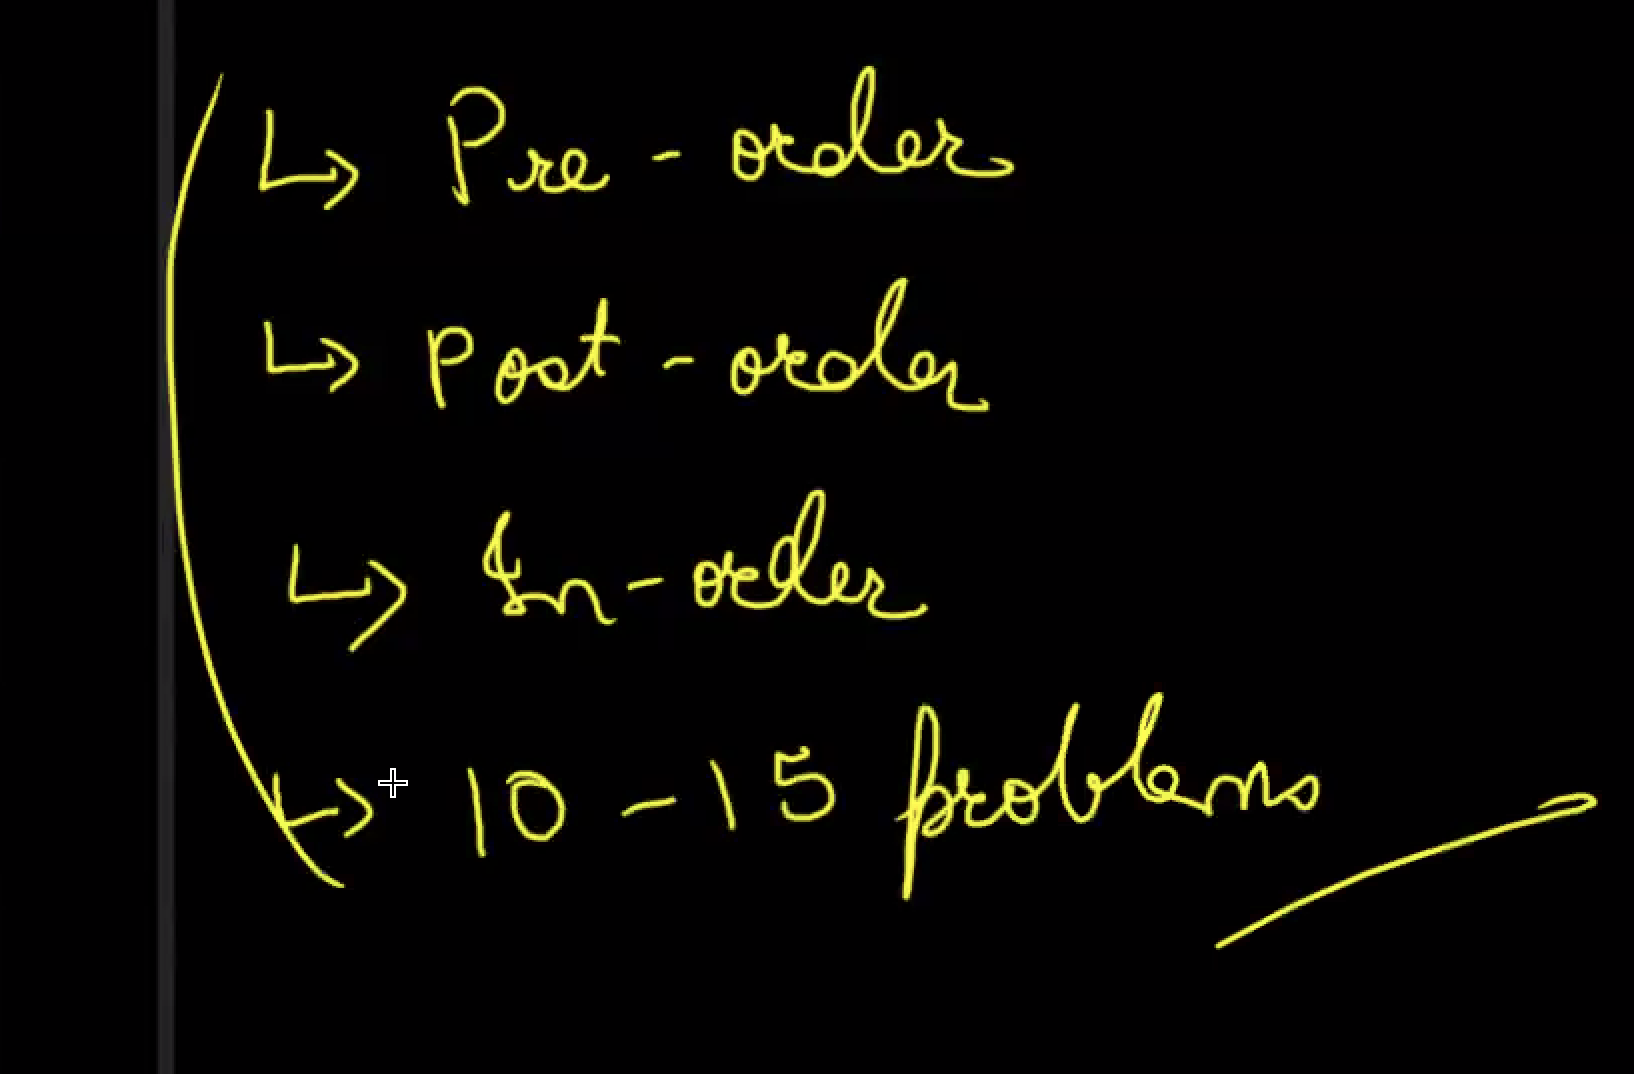 ↳ Pre - order
↳ Post - order
↳ In - order
↳ 10 - 15 problems